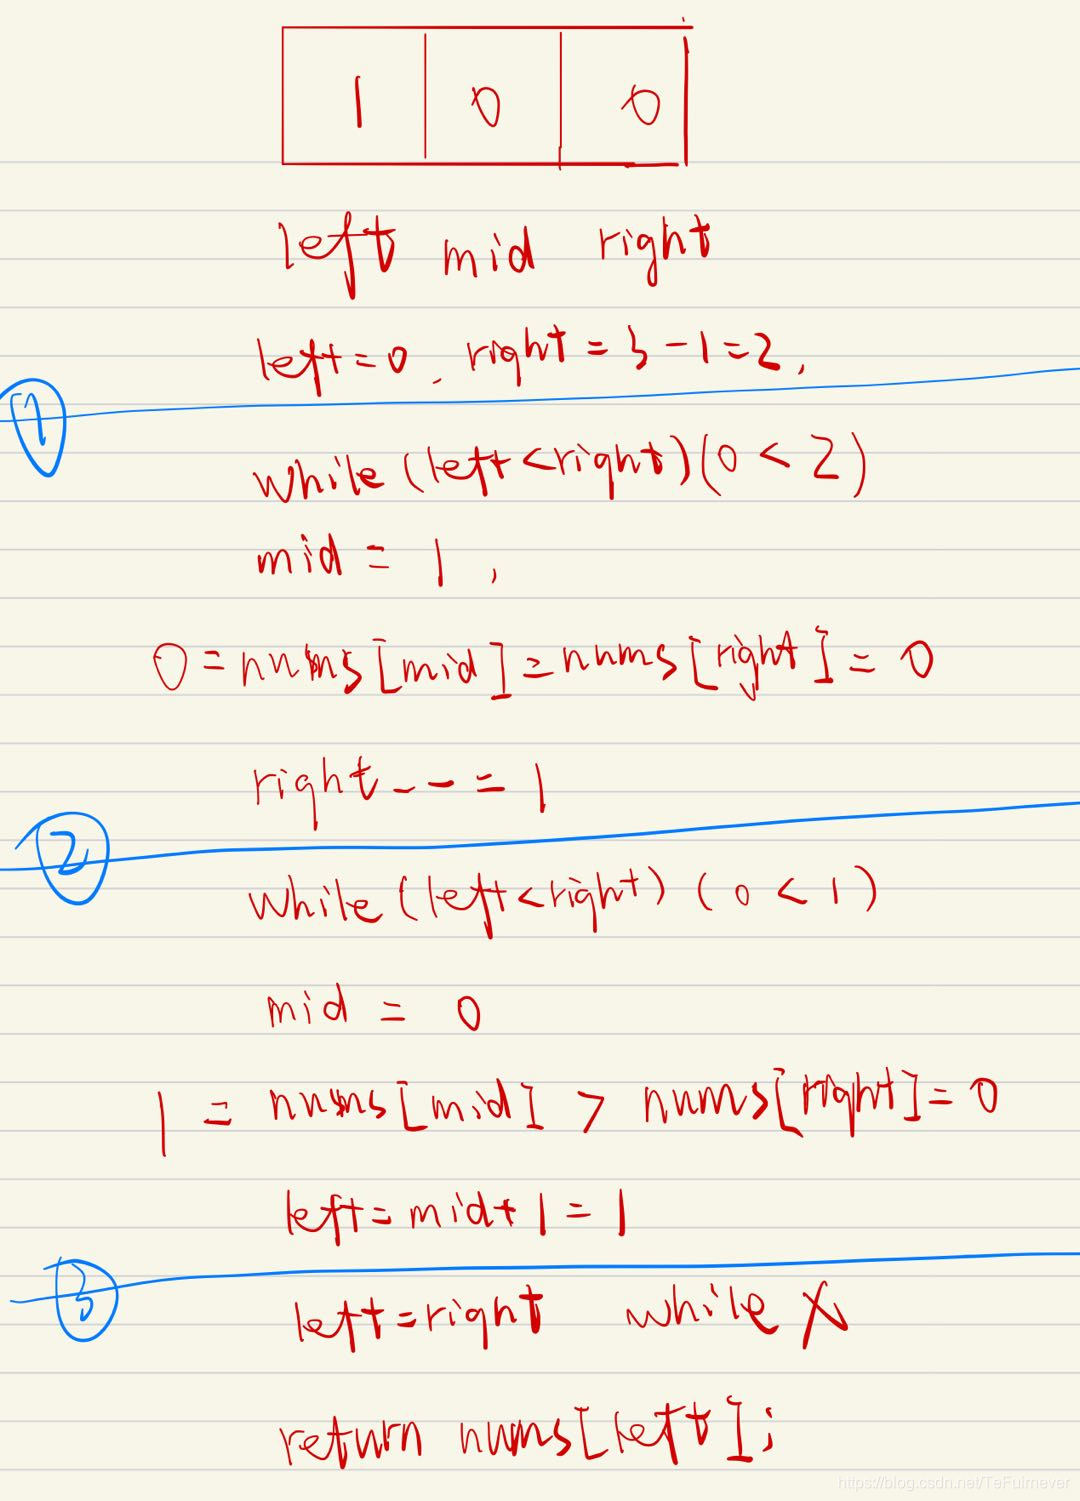 1 0 0
left mid right
left=0. right=3-1=2,
①
while(left<right)(0<2)
mid = 1,
0=nums[mid]=nums[right]=0
right--=1
②
while(left<right)(0<1)
mid = 0
1 = nums[mid] > nums[right]=0
left=mid+1=1
③
left=right while X
return nums[left];
https://blog.csdn.net/TeFuirnever